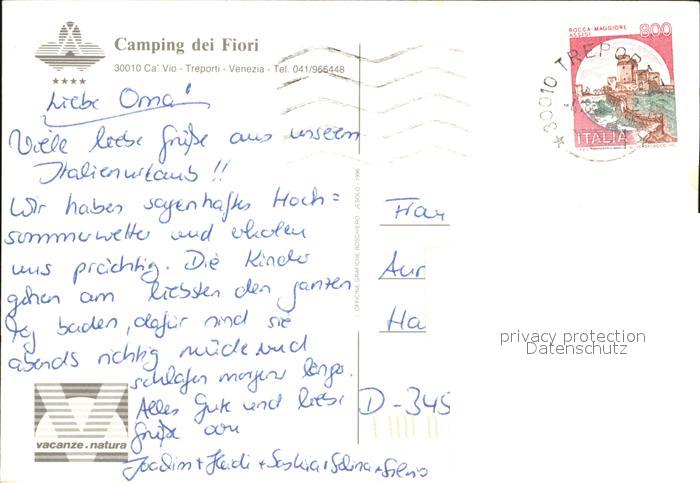 Camping dei Fiori
30010 Ca' Vio - Treporti - Venezia - Tel. 041/966448
ROCCA MAGGIORE
ASSISI
800
30010 TREPORTI
ITALIA
Liebe Oma!
Viele liebe Grüße aus unserem
Italienurlaub!!
Wir haben sagenhaftes Hoch=
sommerwetter und erholen
uns prächtig. Die Kinder
gehen am liebsten den ganzen
Tag baden, dafür sind sie
abends richtig müde und
schlafen morgens lange.
Alles Gute und liebe
Grüße von
Joachim + Heidi + Saskia + Selina + Silvio
OFFICINE GRAFICHE BOSCHIERO JESOLO - 1996
Frau
Aur
Ha
D-345
privacy protection
Datenschutz
vacanze.natura